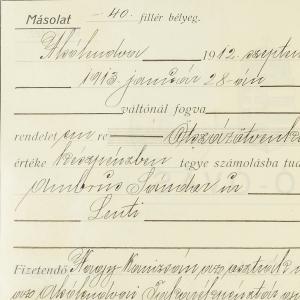 Másolat -40. fillér bélyeg.
Alsólendva 1912. szeptem
1913 január 28-án
váltónál fogva
rendelet em re Ötszázötvenk
értéke készpénzben tegye számolásba tud
Ambrus Sándor úr
Lenti
Fizetendő Nagy-Kanizsán az osztrák m
Alsólendvai Takarékpénztár